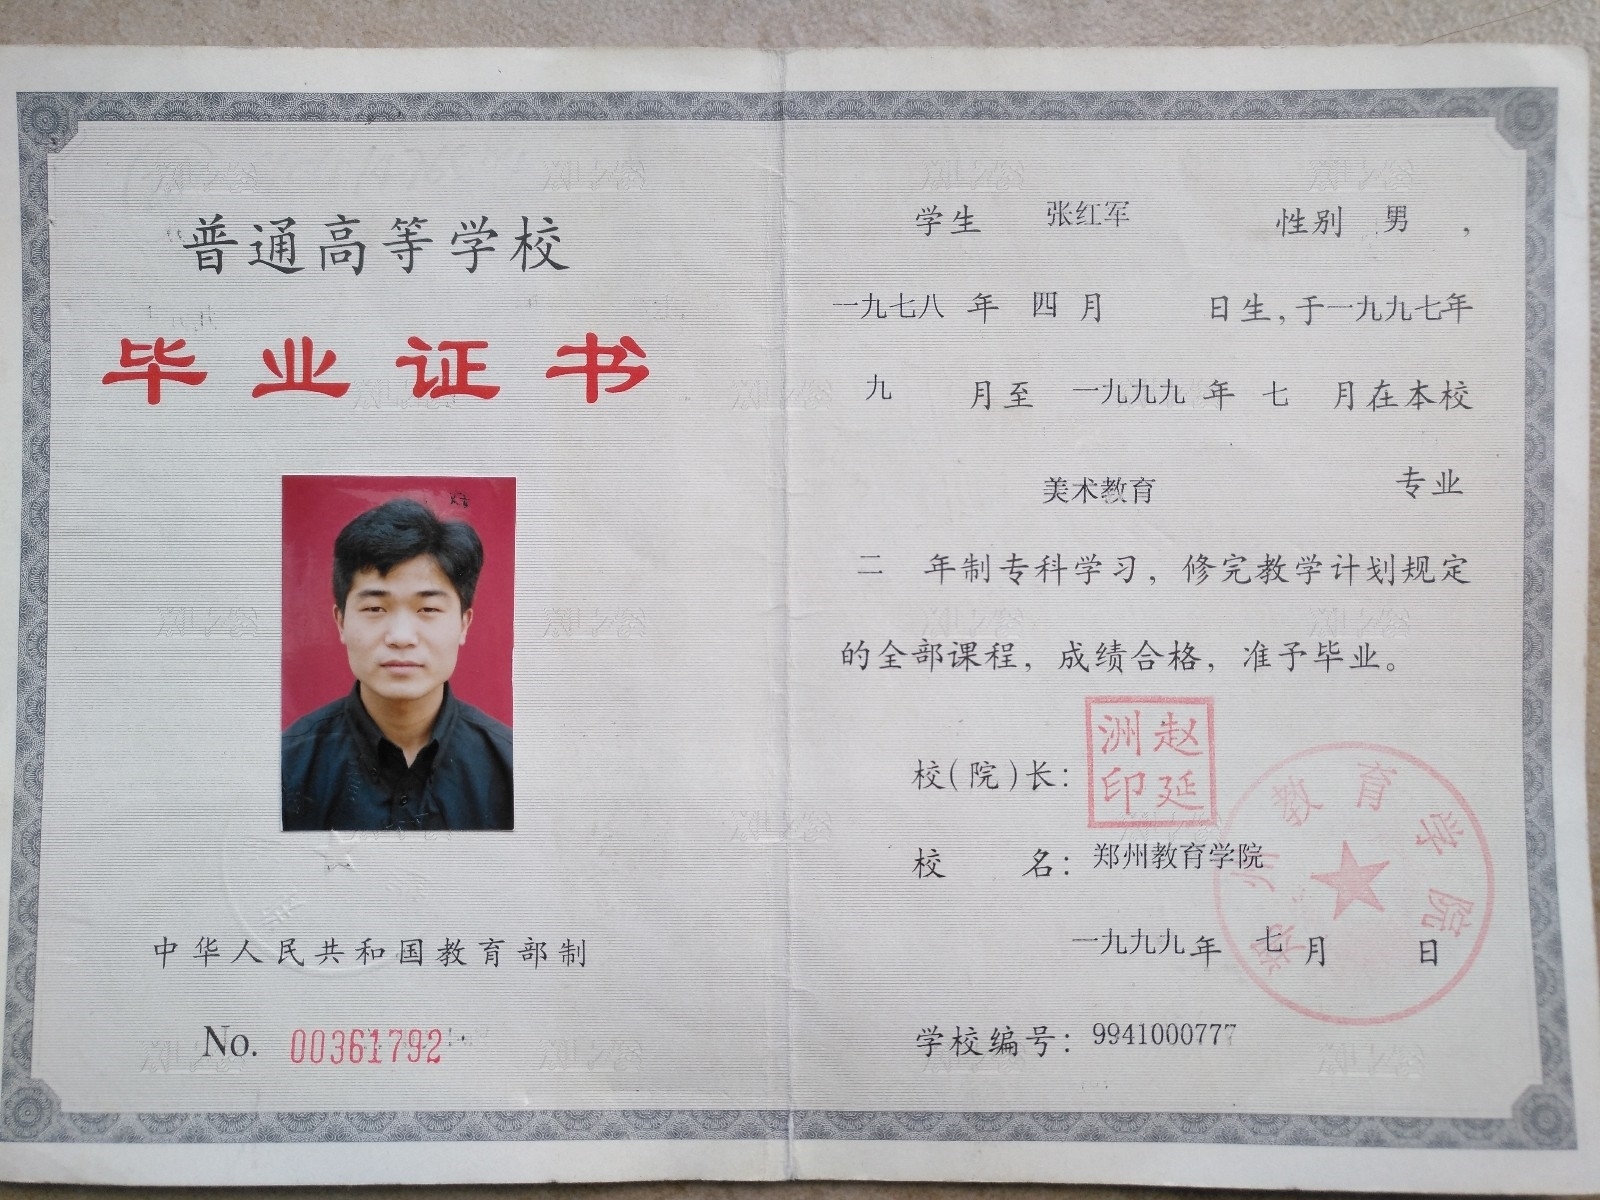 普通高等学校
毕业证书
中华人民共和国教育部制
No. 00361792
学生 张红军 性别 男 ,
一九七八 年 四 月 日生, 于一九九七年
九 月至 一九九九 年 七 月在本校
美术教育 专业
二 年制专科学习, 修完教学计划规定
的全部课程, 成绩合格, 准予毕业。
校(院)长:
赵延洲印
校 名: 郑州教育学院
郑州教育学院
一九九九年 七月 日
学校编号: 9941000777